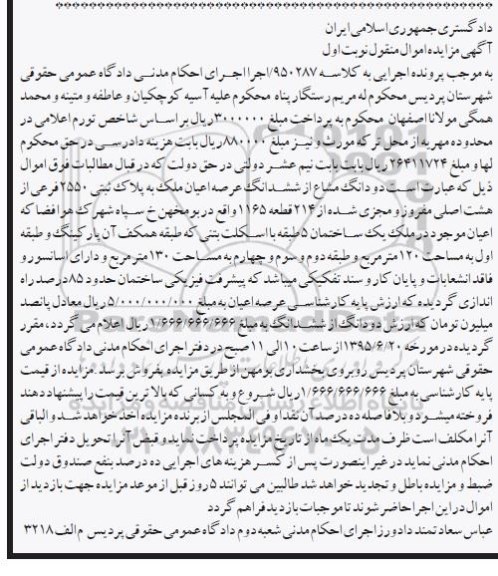 دادگستری جمهوری اسلامی ایران
آگهی مزایده اموال منقول نوبت اول
به موجب پرونده اجرایی به کلاسه ۹۵۰۲۸۷/اجرا اجرای احکام مدنی دادگاه عمومی حقوقی
شهرستان پردیس محکوم له مریم رستگار پناه محکوم علیه آسیه کوچکیان و عاطفه و متینه و محمد
همگی مولانا اصفهان محکوم به پرداخت مبلغ ۳۰۰۰۰۰۰ ریال بر اساس شاخص تورم اعلامی در
محدوده مهریه از محل ترکه مورث و نیز مبلغ ۸۸۰۰۰۰ ریال بابت هزینه دادرسی در حق محکوم
لها و مبلغ ۲۶۴۱۱۷۲۴ ریال بابت بابت نیم عشر دولتی در حق دولت که در قبال مطالبات فوق اموال
ذیل که عبارت است دو دانگ مشاع از ششدانگ عرصه اعیان ملک به پلاک ثبتی ۲۵۵۰ فرعی از
هشت اصلی مفروز و مجزی شده از ۲۱۴ قطعه ۱۱۶۵ واقع در بومهن خ سپاه شهرک هوافضا که
اعیان موجود در ملک یک ساختمان ۵ طبقه با اسکلت بتنی که طبقه همکف آن پارکینگ و طبقه
اول به مساحت ۱۲۰ مترمربع و طبقه دوم و سوم و چهارم به مساحت ۱۳۰ متر مربع و دارای آسانسور و
فاقد انشعابات و پایان کار و سند تفکیکی میباشد که پیشرفت فیزیکی ساختمان حدود ۸۵ درصد راه
اندازی گردیده که ارزش پایه کارشناسی عرصه اعیان به مبلغ ۵/۰۰۰/۰۰۰/۰۰۰ ریال معادل پانصد
میلیون تومان که ارزش دو دانگ از ششدانگ به مبلغ ۱/۶۶۶/۶۶۶/۶۶۶ ریال اعلام می گردد، مقرر
گردیده در مورخه ۱۳۹۵/۶/۲۰ از ساعت ۱۰ الی ۱۱ صبح در دفتر اجرای احکام مدنی دادگاه عمومی
حقوقی شهرستان پردیس روبروی بخشداری بومهن از طریق مزایده بفروش برسد. مزایده از قیمت
پایه کارشناسی به مبلغ ۱/۶۶۶/۶۶۶/۶۶۶ ریال شروع و به کسانی که بالاترین قیمت را پیشنهاد دهند
فروخته میشود و بلافاصله ده درصد آن نقدا و فی المجلس از برنده مزایده اخذ خواهد شد و الباقی
آنرا مکلف است ظرف مدت یک ماه از تاریخ مزایده پرداخت نماید و قبض آنرا تحویل دفتر اجرای
احکام مدنی نماید در غیر اینصورت پس از کسر هزینه های اجرایی ده درصد بنفع صندوق دولت
ضبط و مزایده باطل و تجدید خواهد شد طالبین می توانند ۵ روز قبل از موعد مزایده جهت بازدید از
اموال در این اجرا حاضر شوند تا موجبات بازدید فراهم گردد
عباس سعادتمند دادورز اجرای احکام مدنی شعبه دوم دادگاه عمومی حقوقی پردیس م الف ۳۲۱۸